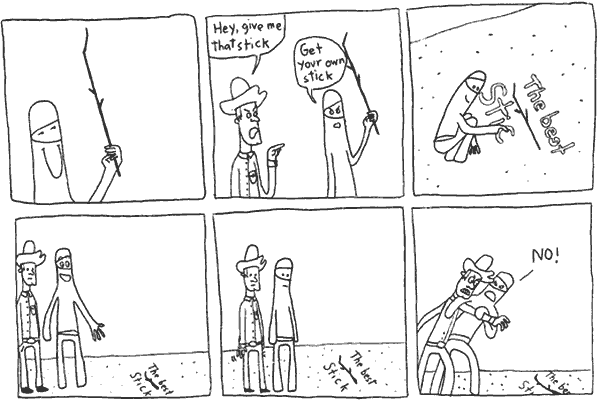 Hey, give me
that stick
Get
your own
stick
The best
St
The best
Stick
The best
Stick
NO!
The be
St